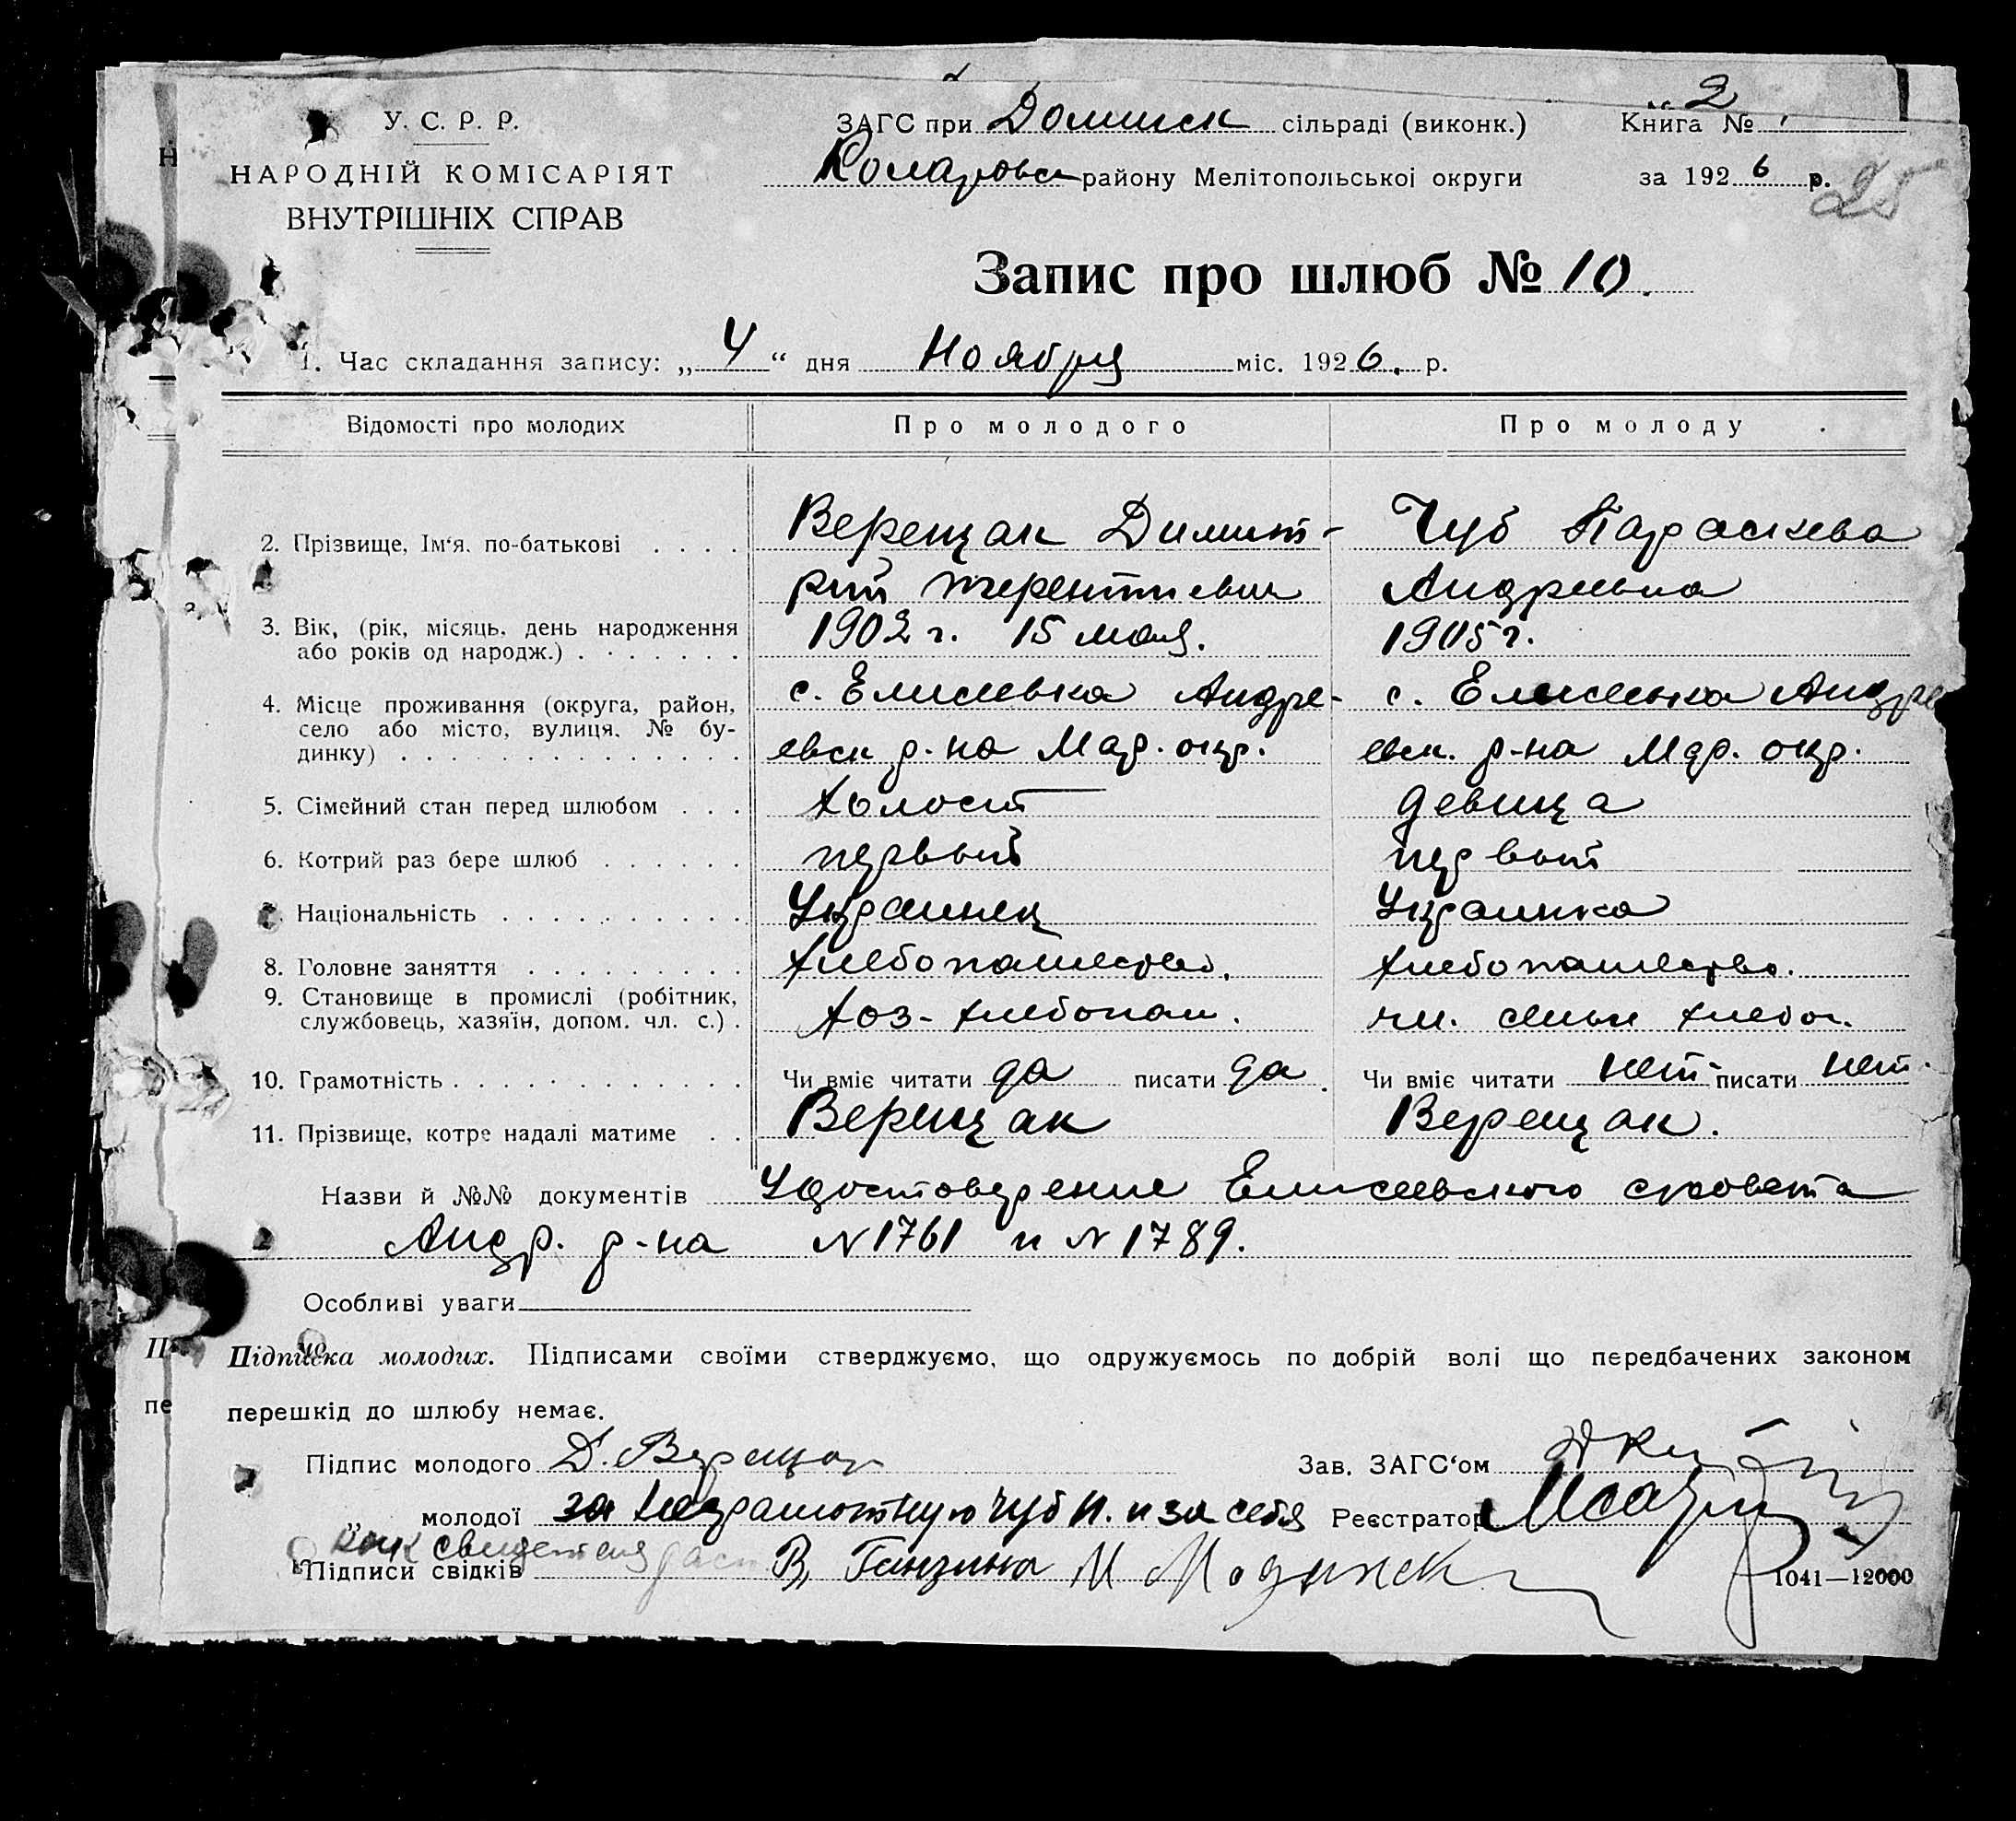 У. С. Р. Р.
НАРОДНІЙ КОМІСАРІЯТ
ВНУТРІШНІХ СПРАВ
ЗАГС при Долинск сільраді (виконк.)
Комаровск району Мелітопольської округи
Книга № 2
за 1926 р.
25
Запис про шлюб № 10.
1. Час складання запису: „ 4 “ дня Ноября міс. 1926. р.
Відомості про молодих Про молодого Про молоду
2. Прізвище, Ім'я. по-батькові . . . . Верещак Димит- Чуб Параскева
рий терентиевич Андреевна
3. Вік, (рік, місяць, день народження або років од народж.) . . . . . . . 1902 г. 15 мая. 1905 г.
4. Місце проживання (округа, район, село або місто, вулиця, № будинку) . . . с. Елисеевка Андре- с. Елисеевка Андре
евск р-на Мар. окр. евск. р-на Мар. окр.
5. Сімейний стан перед шлюбом . . . холост девица
6. Котрий раз бере шлюб . . . . . . первый первый
7. Національність . . . . . . . . . . Украинец Украинка
8. Головне заняття . . . . . . . . . хлебопашество. хлебопашество.
9. Становище в промислі (робітник, службовець, хазяїн, допом. чл. с.) . хоз-хлебопаш. чл. семьи хлебоп.
10. Грамотність . . . . . . . . . . . . . Чи вміє читати да писати да. Чи вміє читати нет писати нет.
11. Прізвище, котре надалі матиме . . Верещак Верещак.
Назви й №№ документів Удостоверение Елисеевского сповета
Андр. р-на N 1761 и N 1789.
Особливі уваги
Підписка молодих. Підписами своїми стверджуємо, що одружуємось по добрій волі що передбачених законом
перешкід до шлюбу немає.
Підпис молодого Д. Верещак Зав. ЗАГС'ом
„ молодої за неграмотную Чуб П. и за себя Реєстратор
как свидетеля
Підписи свідків В.
1041—12000